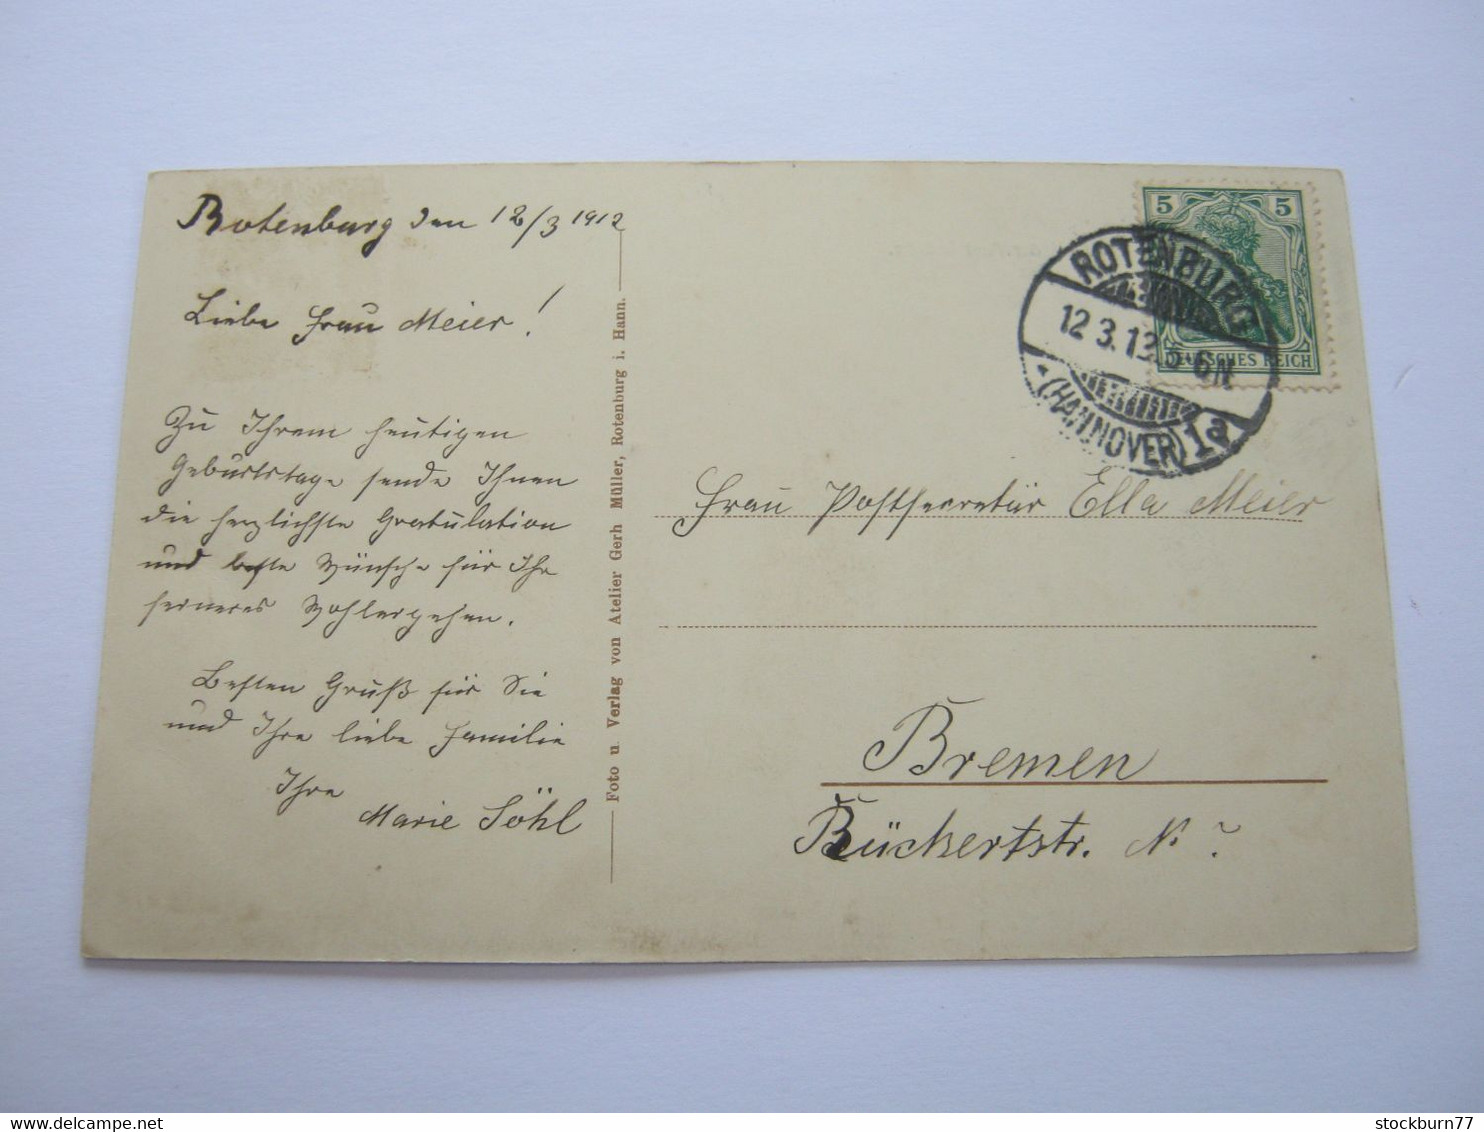 Rotenburg den 12/3 1912
Liebe Frau Meier!
Zu Ihrem heutigen
Geburtstage sende Ihnen
die herzlichste Gratulation
und beste Wünsche für Ihr
ferneres Wohlergehen.
Besten Gruß für Sie
und Ihre liebe Familie
Ihre
Marie Söhl
Foto u. Verlag von Atelier Gerh Müller, Rotenburg i. Hann.
5 5
DEUTSCHES REICH
ROTENBURG
12 3.12.5-6N
(HANNOVER) 1a
Frau Postsecretär Ella Meier
Bremen
Rückertstr. N. ?
stockburn77